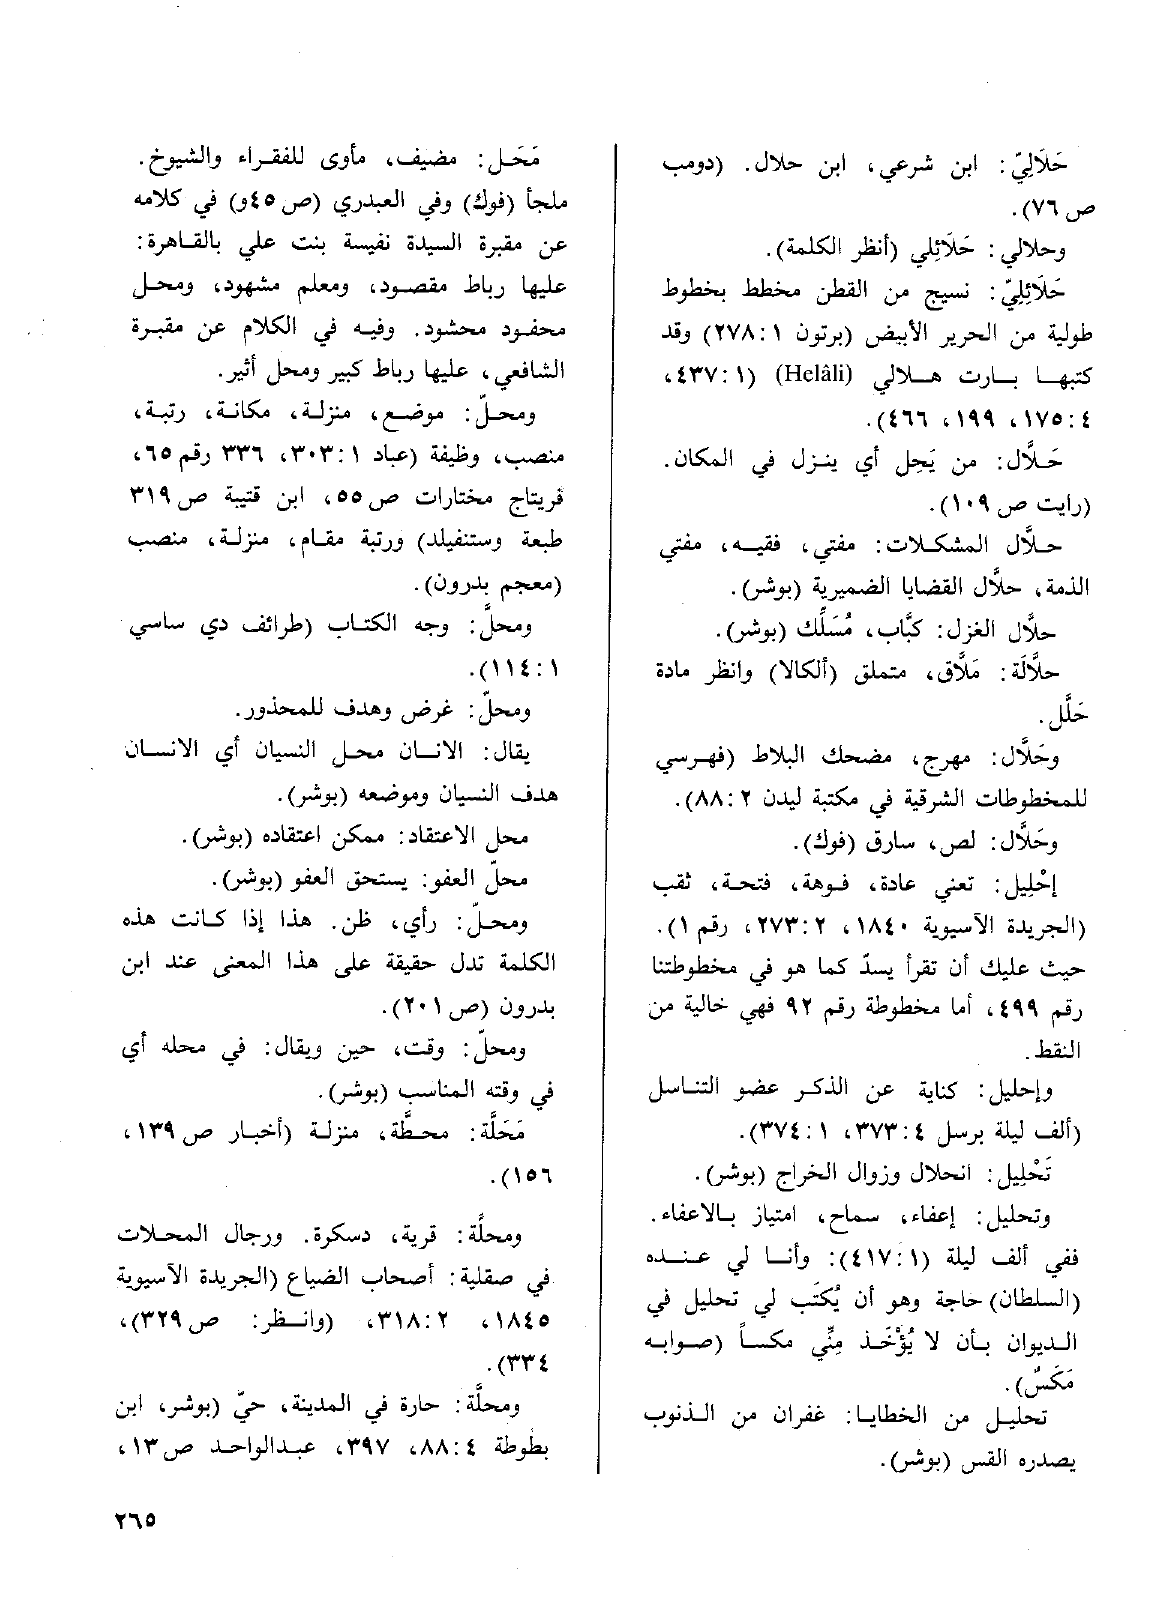 حَلَالِيّ: ابن شرعي، ابن حلال. (دومب
ص ٧٦).
وحلالي: حَلَائِلي (أنظر الكلمة).
حَلَائِلِيّ: نسيج من القطن مخطط بخطوط
طولية من الحرير الأبيض (برتون ١: ٢٧٨) وقد
كتبها بارت هلالي (Helâli) (١: ٤٣٧،
٤: ١٧٥، ١٩٩، ٤٦٦).
حَلَّال: من يَحِل أي ينزل في المكان.
(رايت ص ١٠٩).
حلَّال المشكلات: مفتي، فقيه، مفتي
الذمة، حلَّال القضايا الضميرية (بوشر).
حلَّال الغزل: كبَّاب، مُسَلِّك (بوشر).
حلَّالَة: مَلَّاق، متملق (ألكالا) وانظر مادة
حَلَّل.
وحَلَّال: مهرج، مضحك البلاط (فهرسي
للمخطوطات الشرقية في مكتبة ليدن ٢: ٨٨).
وحَلَّال: لص، سارق (فوك).
إحْلِيل: تعني عادة، فوهة، فتحة، ثقب
(الجريدة الآسيوية ١٨٤٠، ٢: ٢٧٣، رقم ١).
حيث عليك أن تقرأ يسدّ كما هو في مخطوطتنا
رقم ٤٩٩، أما مخطوطة رقم ٩٢ فهي خالية من
النقط.
وإحليل: كناية عن الذكر عضو التناسل
(ألف ليلة برسل ٤: ٣٧٣، ١: ٣٧٤).
تَحْلِيل: انحلال وزوال الخراج (بوشر).
وتحليل: إعفاء، سماح، امتياز بالاعفاء.
ففي ألف ليلة (١: ٤١٧): وأنا لي عنده
(السلطان) حاجة وهو أن يُكتَب لي تحليل في
الديوان بأن لا يُؤْخَذ مِنِّي مكساً (صوابه
مَكَسٌ).
تحليل من الخطايا: غفران من الذنوب
يصدره القس (بوشر).
مَحَل: مضيف، مأوى للفقراء والشيوخ.
ملجأ (فوك) وفي العبدري (ص ٤٥و) في كلامه
عن مقبرة السيدة نفيسة بنت علي بالقاهرة:
عليها رباط مقصود، ومعلم مشهود، ومحل
محفود محشود. وفيه في الكلام عن مقبرة
الشافعي، عليها رباط كبير ومحل أثير.
ومحلّ: موضع، منزلة، مكانة، رتبة،
منصب، وظيفة (عباد ١: ٣٠٣، ٣٣٦ رقم ٦٥،
فريتاج مختارات ص ٥٥، ابن قتيبة ص ٣١٩
طبعة وستنفيلد) ورتبة مقام، منزلة، منصب
(معجم بدرون).
ومحلَّ: وجه الكتاب (طرائف دي ساسي
١: ١١٤).
ومحلّ: غرض وهدف للمحذور.
يقال: الانان محل النسيان أي الانسان
هدف النسيان وموضعه (بوشر).
محل الاعتقاد: ممكن اعتقاده (بوشر).
محلّ العفو: يستحق العفو (بوشر).
ومحلّ: رأي، ظن. هذا إذا كانت هذه
الكلمة تدل حقيقة على هذا المعنى عند ابن
بدرون (ص ٢٠١).
ومحلّ: وقت، حين ويقال: في محله أي
في وقته المناسب (بوشر).
مَحَلَّة: محطَّة، منزلة (أخبار ص ١٣٩،
١٥٦).
ومحلَّة: قرية، دسكرة. ورجال المحلات
في صقلية: أصحاب الضياع (الجريدة الآسيوية
١٨٤٥، ٢: ٣١٨، (وانظر: ص ٣٢٩)،
٣٣٤).
ومحلَّة: حارة في المدينة، حيّ (بوشر، ابن
بطوطة ٤: ٨٨، ٣٩٧، عبدالواحد ص ١٣،
٢٦٥